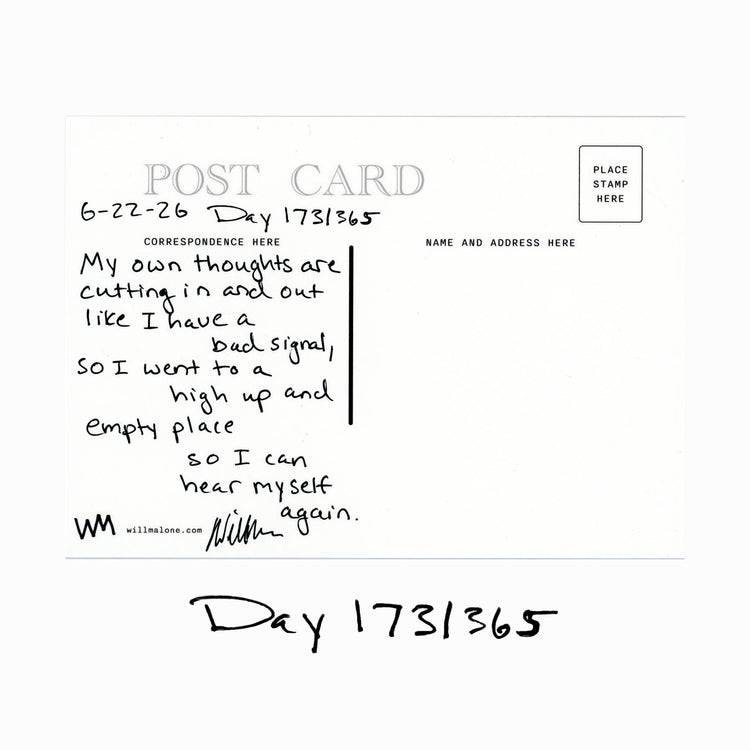 POST CARD
PLACE
STAMP
HERE
6-22-26 Day 173/365
CORRESPONDENCE HERE
NAME AND ADDRESS HERE
My own thoughts are
cutting in and out
like I have a
bad signal,
so I went to a
high up and
empty place
so I can
hear myself
again.
WM willmalone.com
Day 173/365